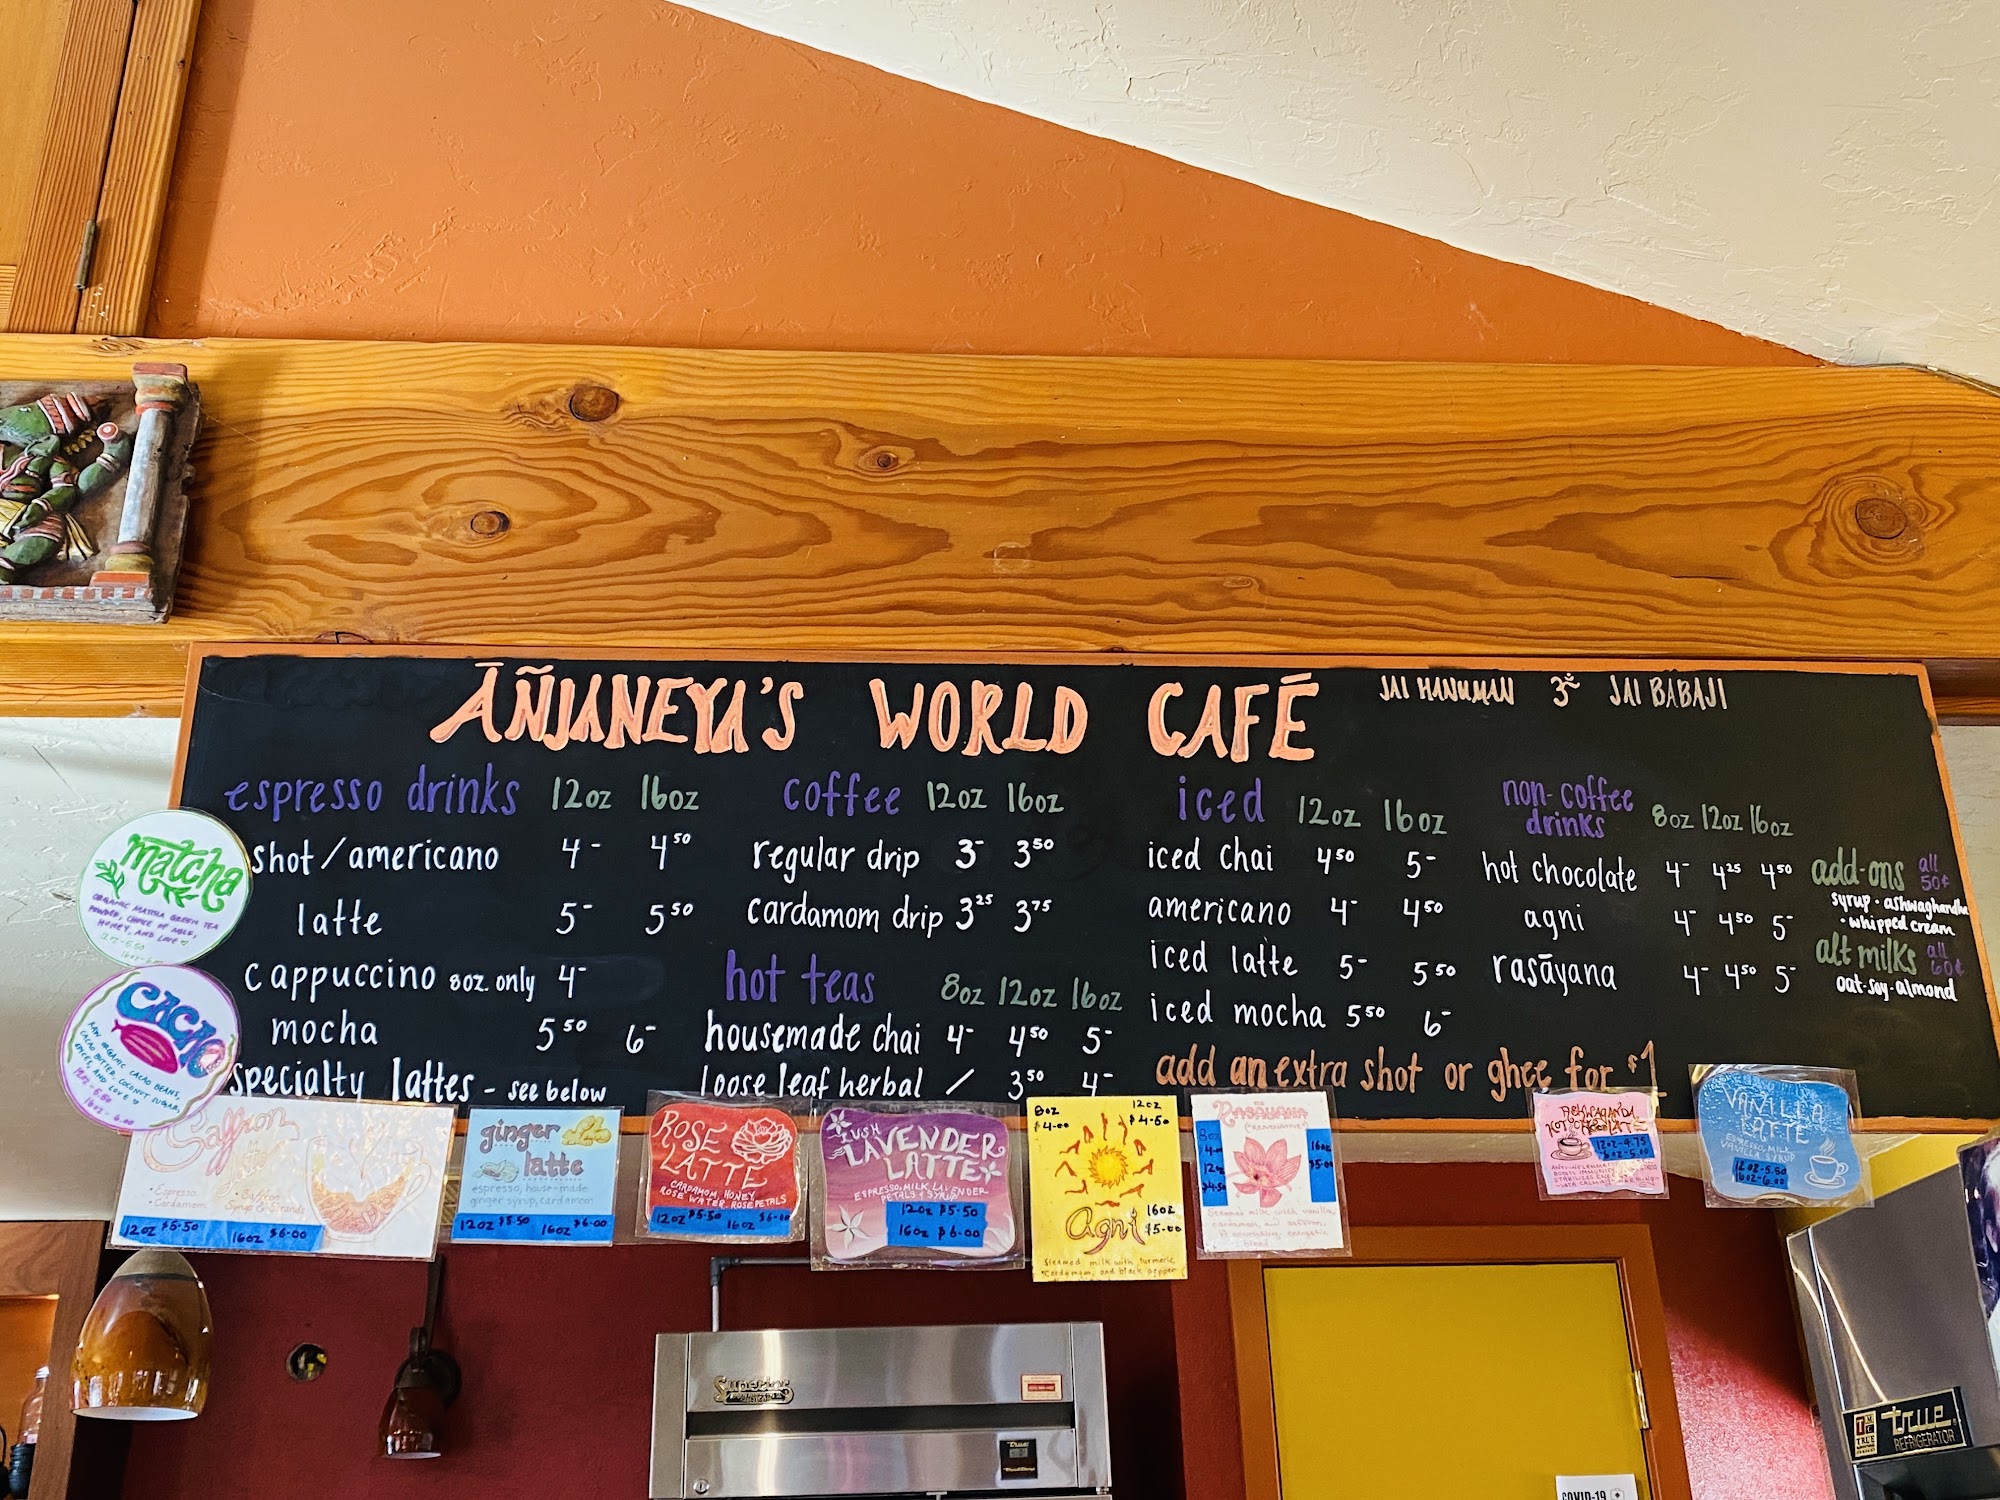 ĀÑJANEYA'S WORLD CAFÉ
JAI HANUMAN ॐ JAI BABAJI
espresso drinks 12oz 16oz
shot / americano 4- 4 50
latte 5- 5 50
cappuccino 8oz. only 4-
mocha 5 50 6-
specialty lattes - see below
coffee 12oz 16oz
regular drip 3- 3 50
cardamom drip 3 25 3 75
hot teas 8oz 12oz 16oz
housemade chai 4- 4 50 5-
loose leaf herbal / 3 50 4-
iced 12oz 16oz
iced chai 4 50 5-
americano 4- 4 50
iced latte 5- 5 50
iced mocha 5 50 6-
add an extra shot or ghee for $1
non-coffee
drinks 8oz 12oz 16oz
hot chocolate 4- 4 25 4 50
agni 4- 4 50 5-
rasāyana 4- 4 50 5-
add-ons all 50¢
syrup · ashwagandha
· whipped cream
alt milks all 60¢
oat-soy-almond
matcha
ORGANIC MATCHA GREEN TEA
POWDER, CHOICE OF MILK,
HONEY, AND LOVE ♡
12oz-5.50
16oz-6.00
CACAO
RAW ORGANIC CACAO BEANS,
CACAO BUTTER, COCONUT SUGAR,
SPICES, AND LOVE ♡
12oz-5.50
16oz-6.00
Saffron
latte
• Espresso
• Cardamom
• Saffron
Syrup & Strands
12oz $5.50 16oz $6.00
ginger
latte
espresso, house-made
ginger syrup, cardamom
12oz $5.50 16oz $6.00
ROSE
LATTE
CARDAMOM, HONEY
ROSE WATER, ROSE PETALS
12oz $5.50 16oz $6.00
LUSH
LAVENDER
LATTE
ESPRESSO, MILK, LAVENDER
PETALS & SYRUP
12oz $5.50
16oz $6.00
8oz
$4.00
12oz
$4.50
agni
16oz
$5.00
Steamed milk with turmeric,
cardamom, and black pepper
RASĀYANA
8oz
4.00
12oz
$4.50
16oz
$5.00
Steamed milk with vanilla,
cardamom, and saffron.
A nourishing, energetic
blend
ASHWAGANDA
HOT CHOCOLATE
12oz-4.75
16oz-5.00
VANILLA
LATTE
ESPRESSO, MILK
VANILLA SYRUP
12oz-5.50
16oz-6.00
Superior
True
true
TRUE
REFRIGERATOR
COVID-19